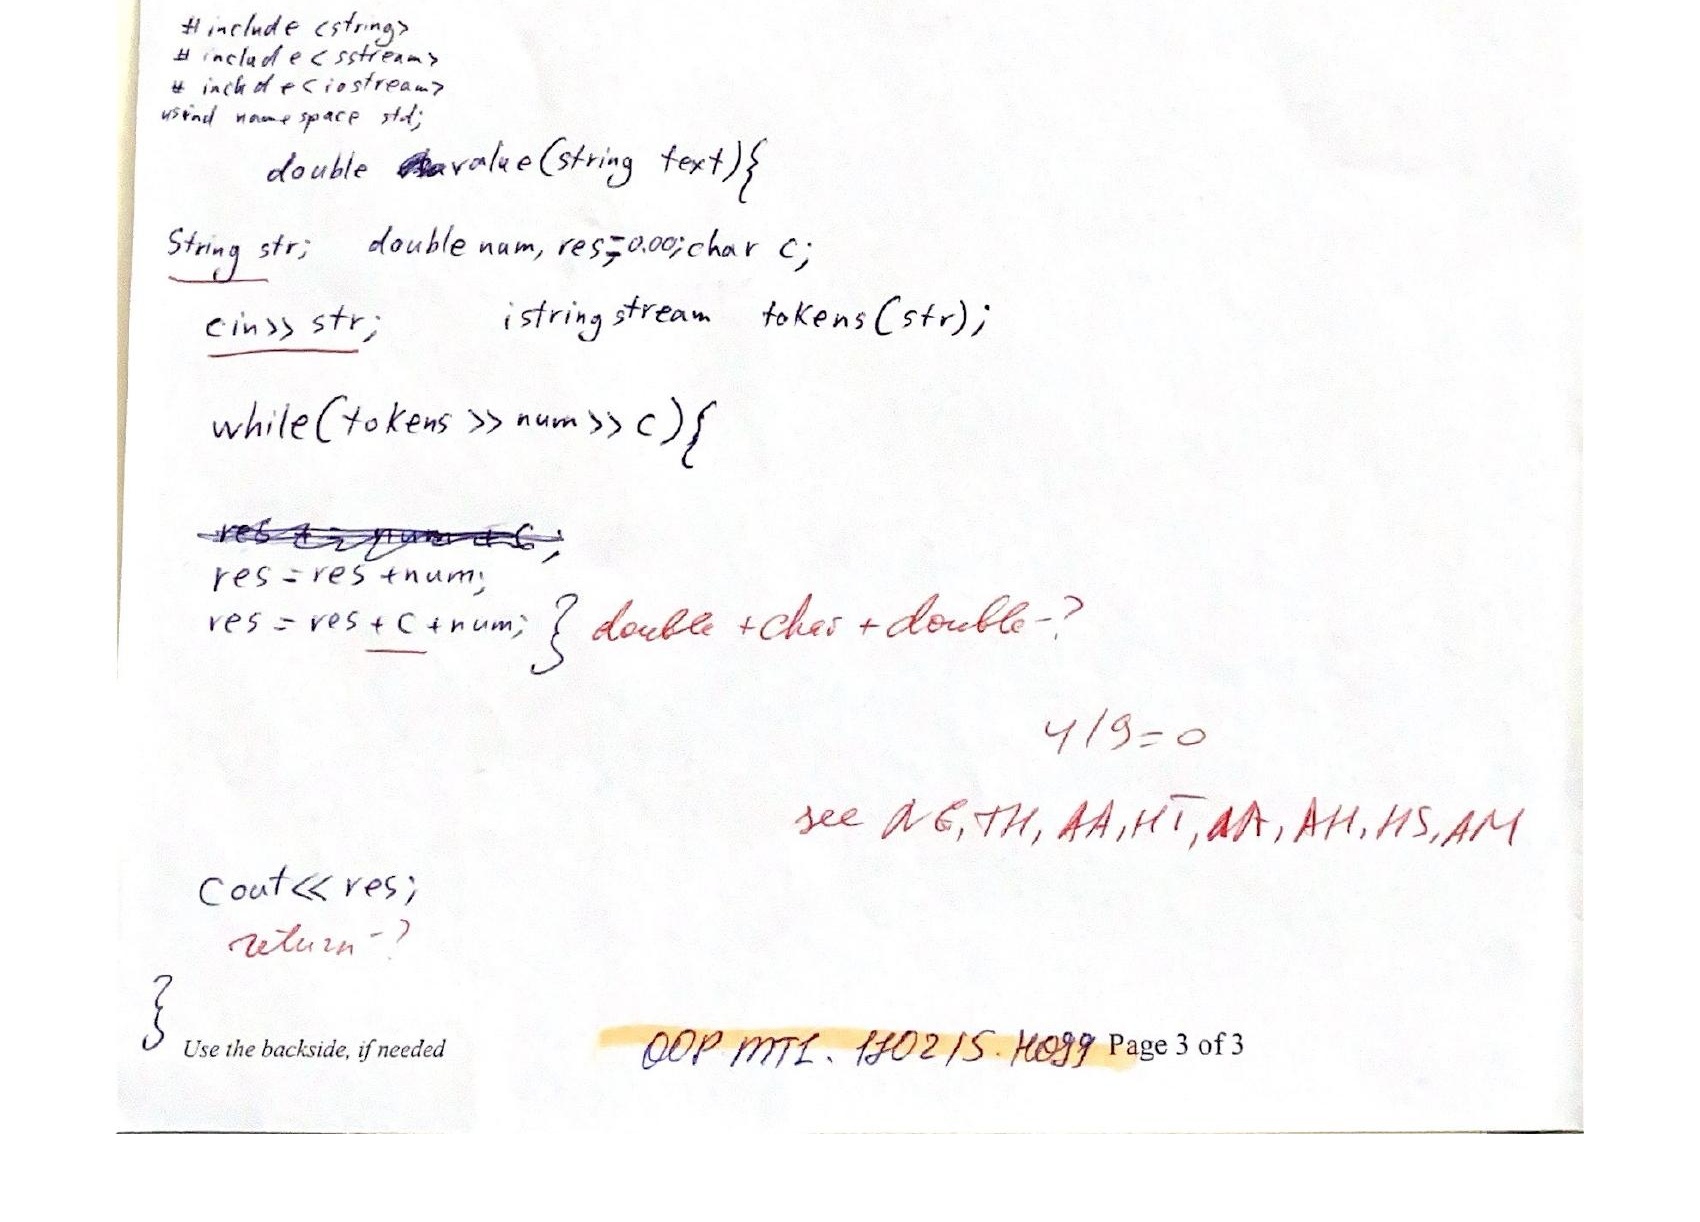 # include <string>
# include < sstream>
# include <iostream>
usind namespace std;
double value(string text){
String str; double num, res=0.00; char c;
cin>> str; istringstream tokens(str);
while(tokens >> num >> c){
res = res +num;
res = res + c +num; } double + char + double -?
4/9=0
see TH, AA, HT, AA, AH, HS, AM
Cout<< res;
return -?
}
Use the backside, if needed OOP MT1. Page 3 of 3